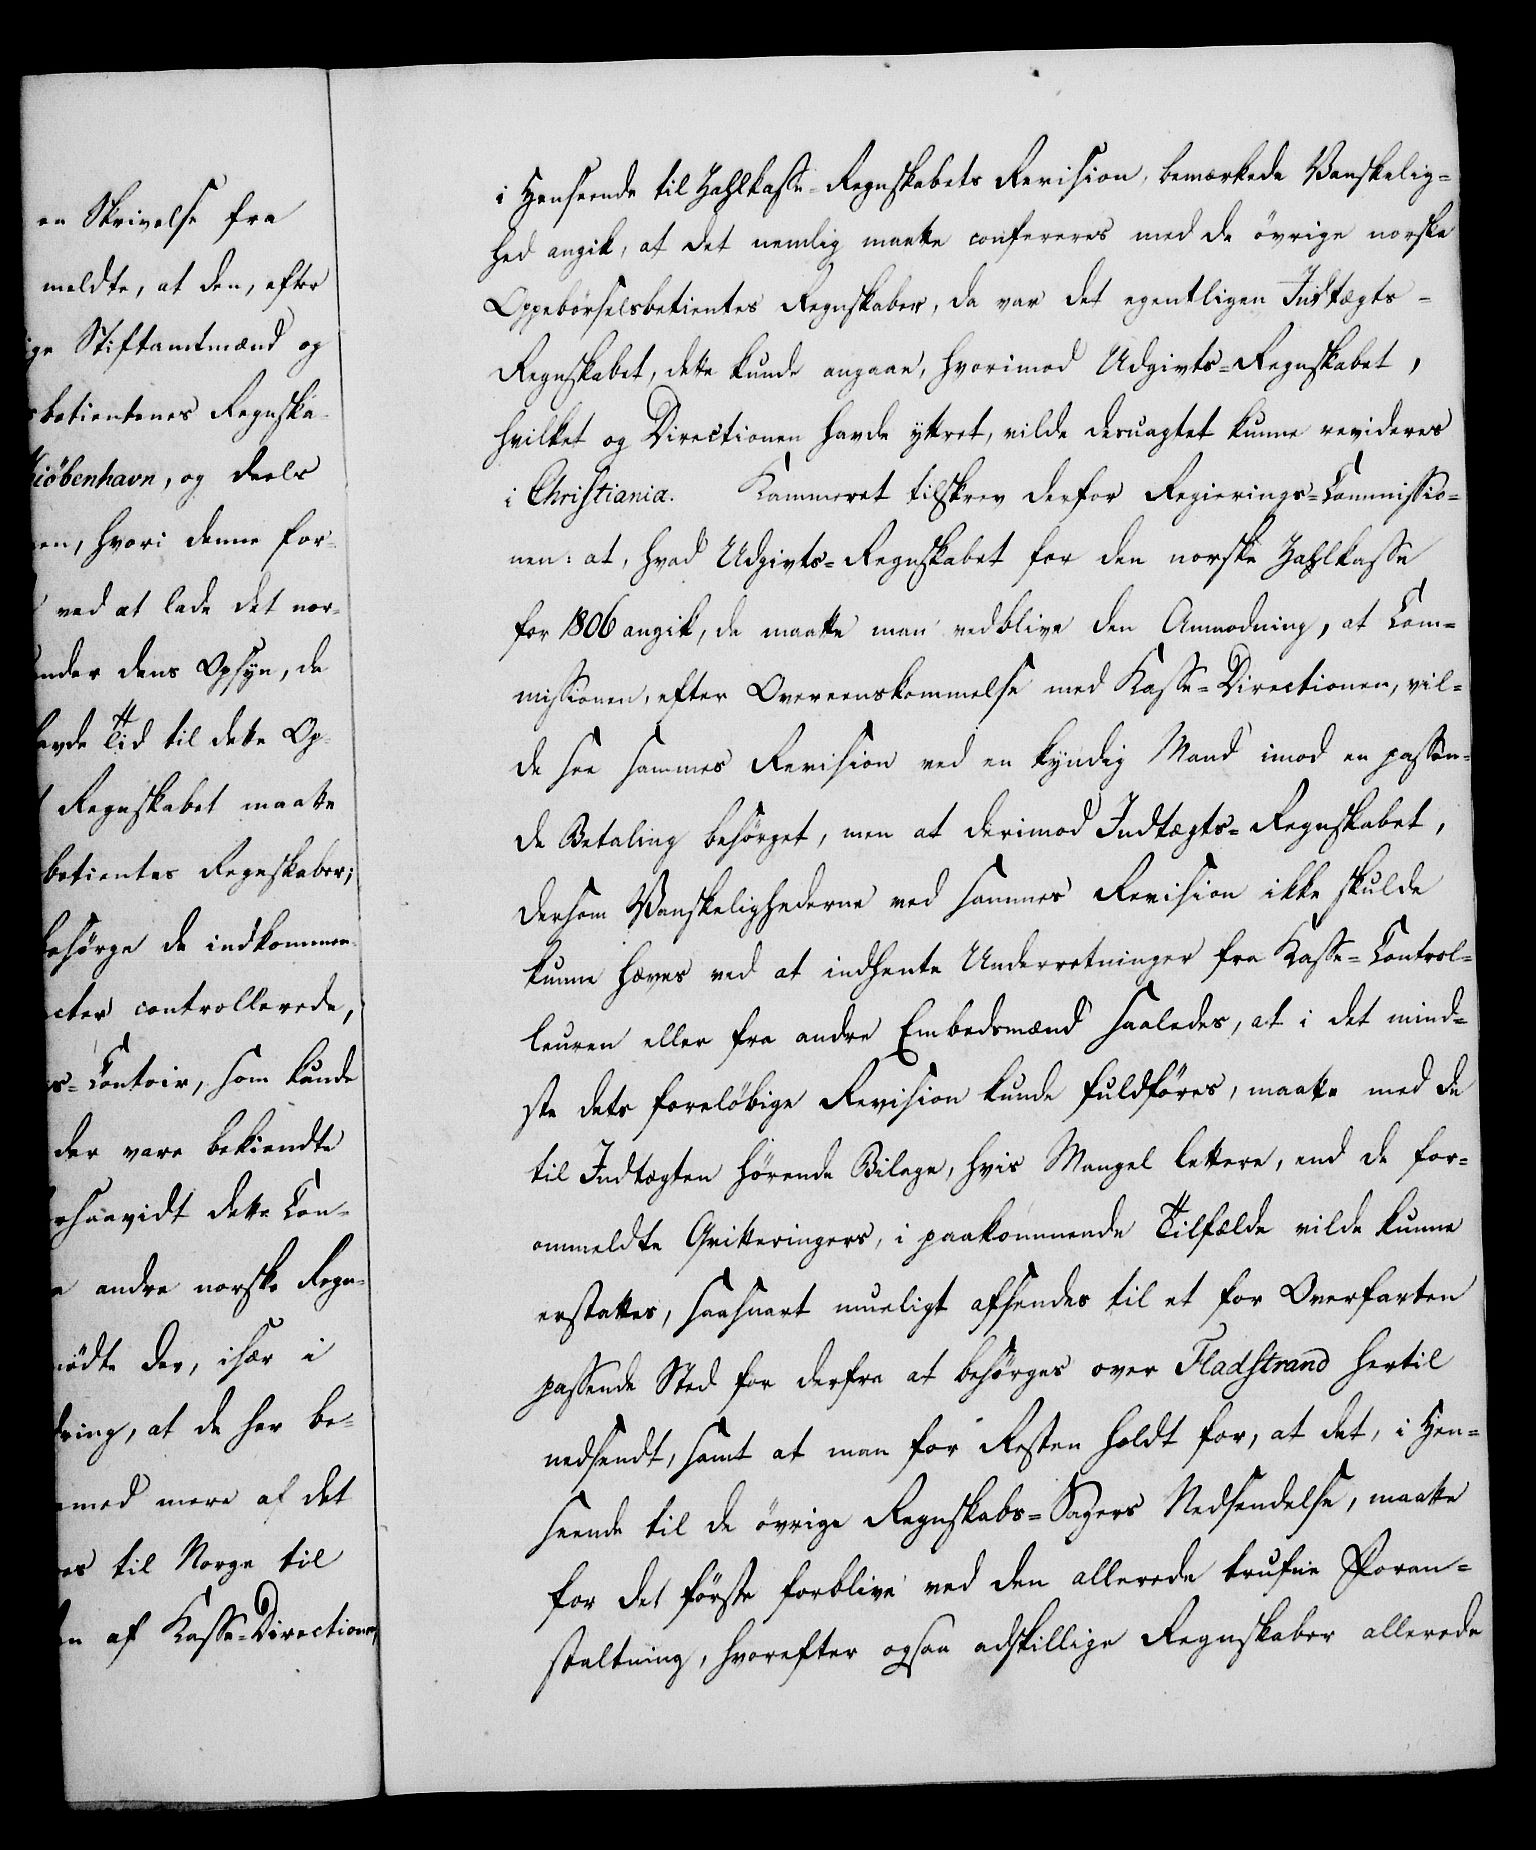 en Skrivelse fra
meldte, at den, efter
ige Stiftamtmænd og
sbetientenes Regnska-
Kiöbenhavn, og deels
en, hvori denne for-
ved at lade det nor-
under dens Opsyn, da
havde Tid til dette Op-
Regnskabet maatte
betientes Regnskaber;
besörge de indkommen-
cter controllerede,
s-Contoir, som kunde
der vare bekiendte
rsaavidt dette Con-
andre norske Regn-
mödte der, især i
dring, at de her be-
med mere af det
es til Norge til
en af Kasse-Directionen,
i Henseende til Zahlkasse-Regnskabets Revision, bemærkede Vanskelig-
hed angik, at det nemlig maatte confereres med de övrige norske
Oppebörselsbetientes Regnskaber, da var det egentligen Indtægts-
Regnskabet, dette kunde angaae, hvorimod Udgivts-Regnskabet,
hvilket og Directionen havde yttret, vilde desuagtet kunne revideres
i Christiania. Kammeret tilskrev derfor Regierings-Commissio-
nen: at, hvad Udgivts-Regnskabet for den norske Zahlkasse
for 1806 angik, da maatte man vedblive den Anmodning, at Com-
missionen, efter Overeenskommelse med Kasse-Directionen, vil-
de see sammes Revision ved en kyndig Mand imod en passen-
de Betaling besörget, men at derimod Indtægts-Regnskabet,
dersom Vanskelighederne ved sammes Revision ikke skulde
kunne hæves ved at indhente Underretninger fra Kasse-Control-
leuren eller fra andre Embedsmænd saaledes, at i det mind-
ste dets foreløbige Revision kunde fuldföres, maatte med de
til Indtægten hörende Bilage, hvis Mangel lettere, end de for-
ommeldte Qvitteringers, i paakommende Tilfælde vilde kunne
erstattes, saasnart mueligt afsendes til et for Overfarten
passende Sted for derfra at besörges over Fladstrand hertil
nedsendt, samt at man for Resten holdt for, at det, i Hen-
seende til de övrige Regnskabs-Sagers Nedsendelse, maatte
for det förste forblive ved den allerede trufne Foran-
staltning, hvorefter ogsaa adskillige Regnskaber allerede